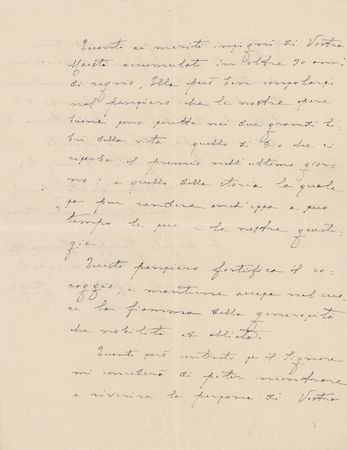 Quanto ai meriti insigni di Vostra
Maestà accumulati in oltre 20 anni
di regno, Ella può ben consolarsi
nel pensiero che le nostre opere
buone sono scritte nei due grandi li-
bri della vita: quello di Dio che ci
riserba il premio nell'ultimo gior-
no: e quello della storia la quale
sa pur rendere anch'essa a suo
tempo le sue e le nostre giusti-
zie.
Questo pensiero fortifica il co-
raggio, e mantiene accesa nel cuo-
re la fiamma della generosità
che nobilita ed allieta.
Quanto sarò contento se il Signore
mi concederà di poter incontrare
e riverire la persona di Vostra